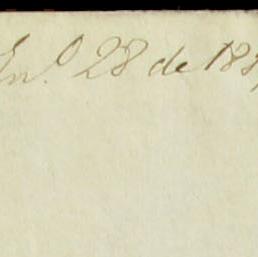 Enº 28 de 18